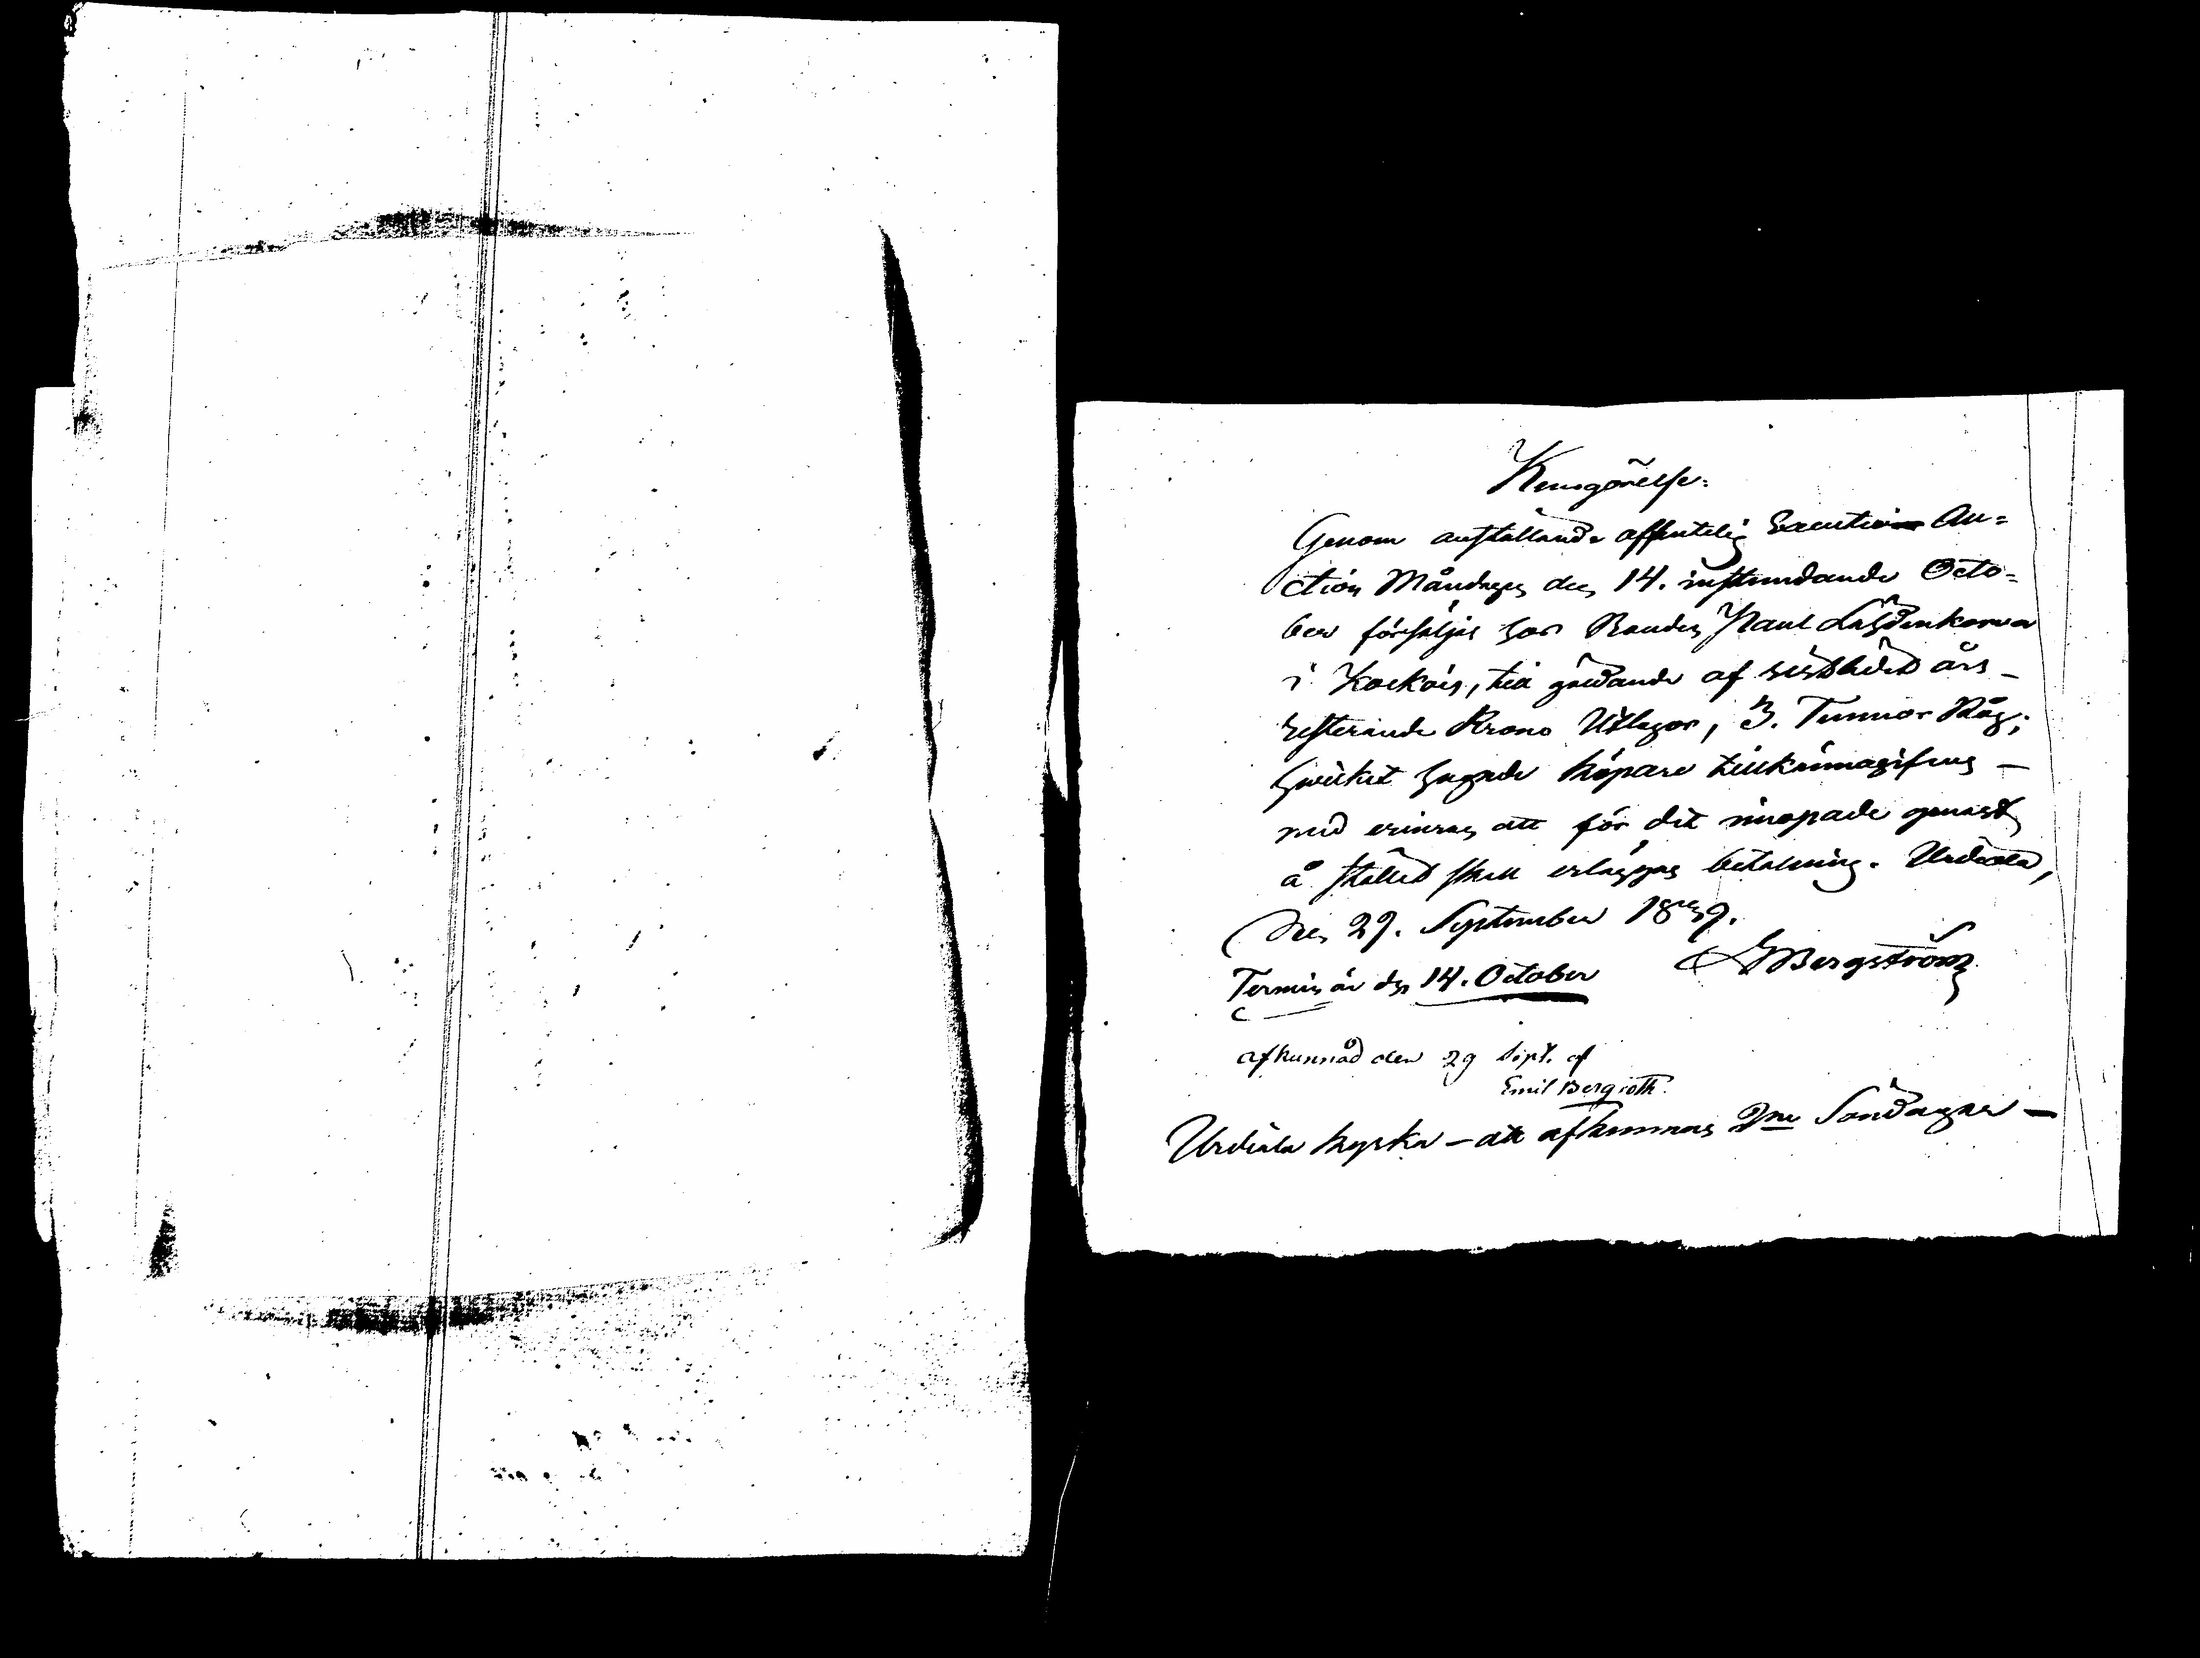 Kungörelse.
Genom anställande offentelig Executions Au=
ction Måndagen den 14. instundande Octo=
ber försäljes hos Bonden Paul Lähdenkorva
i Kockois, till gäldande af sistledit års
resterande Krono Utlagor, 3. Tunnor Råg;
Hwilket hugade köpare tillkännagifves –
med erinran att för det inropade genast
å stället skall erläggas betalning. Urdiala,
den 29. September 1839.
Termin är den 14. October Bergström
afkunnad den 29 Sept. af
Emil Bergroth.
Urdiala kyrka – att afkunnas 2ne Söndagar –